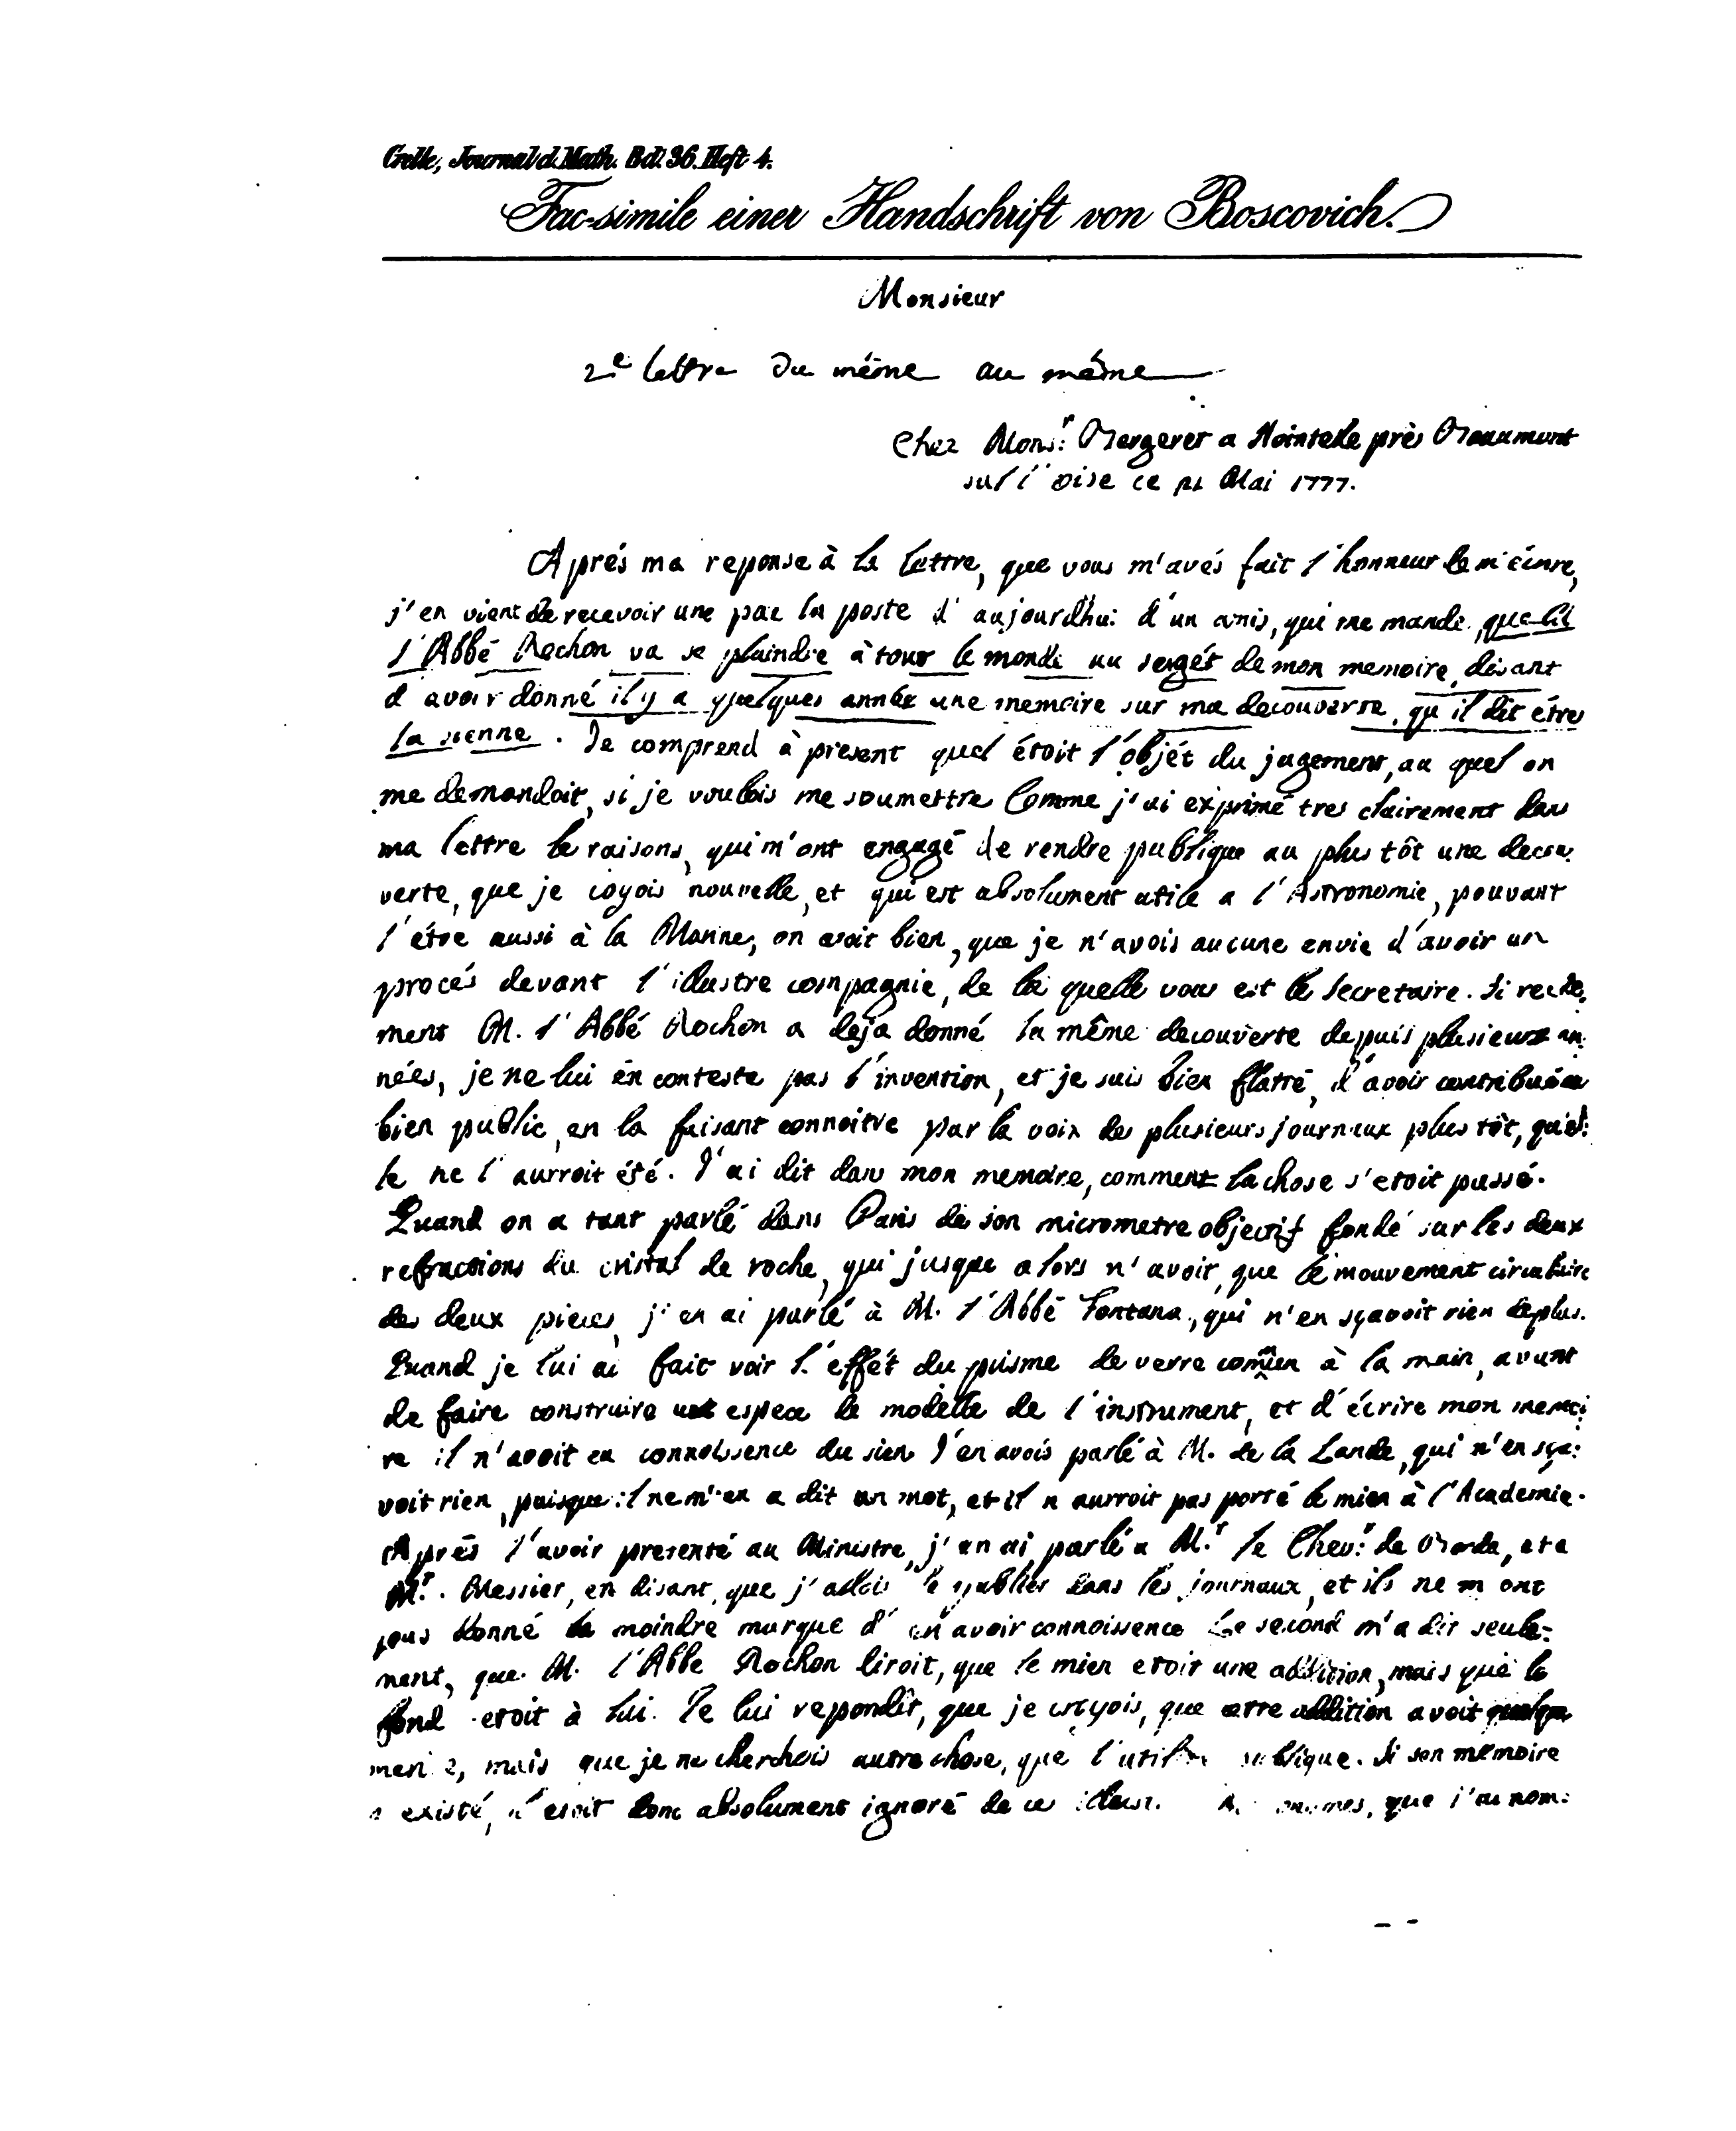 Crelle, Journal d. Math. Bd. 36. Heft 4.
Fac-simile einer Handschrift von Boscovich.
Monsieur
2e lettre du même au même
Chez Monsr. Bergeret a Nointelle près Beaumont
sul l'oise ce 21 Mai 1777.
Aprés ma reponse à la lettre, que vous m'avés fait l'honneur de m'écrire,
j'en vient de recevoir une par la poste d'aujourdhui d'un amis, qui me mande, que
l'Abbé Rochon va se plaindre à tout le monde au sugét de mon memoire, disant
d'avoir donné il y a quelques année une memoire sur ma decouverte, qu'il dit étre
la sienne. Je comprend à present quel étoit l'objét du jugement, au quel on
me demandoit, si je voulois me soumettre Comme j'ai exprimé tres clairement dans
ma lettre le raisons, qui m'ont engagé de rendre publique au plus tôt une decou:
verte, que je coyois nouvelle, et qui est absolument utile a l'Astronomie, pouvant
l'étre aussi à la Marine, on voit bien, que je n'avois aucune envie d'avoir un
procés devant l'illustre compagnie, de la quelle vous est le secretaire. Si reelle:
ment M. l'Abbé Rochon a deja donné la même decouverte depuis plusieurs an:
nées, je ne lui en conteste pas l'invention, et je suis bien flatté, d'avoir contribué au
bien public, en la faisant connoitre par la voix des plusieurs journaux plus tôt, qu'el:
le ne l'aurroit été. J'ai dit dans mon memoire, comment la chose s'etoit passé.
Quand on a tant parlé dans Paris de son micrometre objectif fondé sur les deux
refractions du cristal de roche, qui jusque alors n'avoit, que le mouvement circulaire
des deux pieces, j'en ai parlé à M. l'Abbé Fontana, qui n'en sçavoit rien de plus.
Quand je lui ai fait voir l'effét du prisme de verre commun à la main, avant
de faire construire une espece de modelle de l'instrument, et d'écrire mon memoi:
re il n'avoit eu connoissence du sien J'en avois parlé à M. de la Lande, qui n'en sça:
voit rien, puisque il ne m'en a dit un mot, et il n'aurroit pas porté le mien à l'Academie.
Après l'avoir presenté au Ministre, j'en ai parlé a Mr. le Chevr. de Borda, et a
Mr. Messier, en disant, que j'allois le publier dans les journaux, et ils ne m'ont
pas donné la moindre marque d'en avoir connoissence Le second m'a dit seule:
ment, que M. l'Abbe Rochon diroit, que le mien etoit une addition, mais que le
fond etoit à lui. Je lui repondit, que je croyois, que cette addition avoit quelque
merite, mais que je ne cherchois autre chose, que l'utilité publique. Si son memoire
a existé, il etoit donc absolument ignoré de ces que j'ai nom: